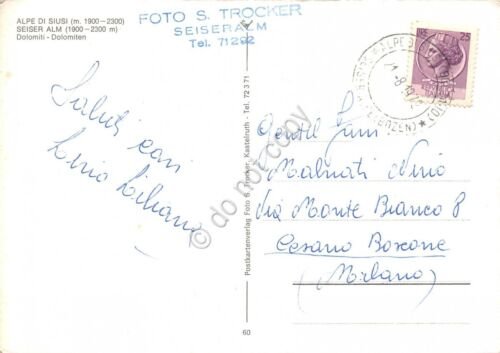 ALPE DI SIUSI (m. 1900-2300)
SEISER ALM (1900-2300 m)
Dolomiti - Dolomiten
FOTO S. TROCKER
SEISERALM
Tel. 71292
25
Saluti cari
Lino Liliana
Postkartenverlag Foto S. Trocker, Kastelruth - Tel. 72 3 71
do not copy
Gentil.
Malnati Nino
Via Monte Bianco 8
Cesano Boscone
(Milano)
60